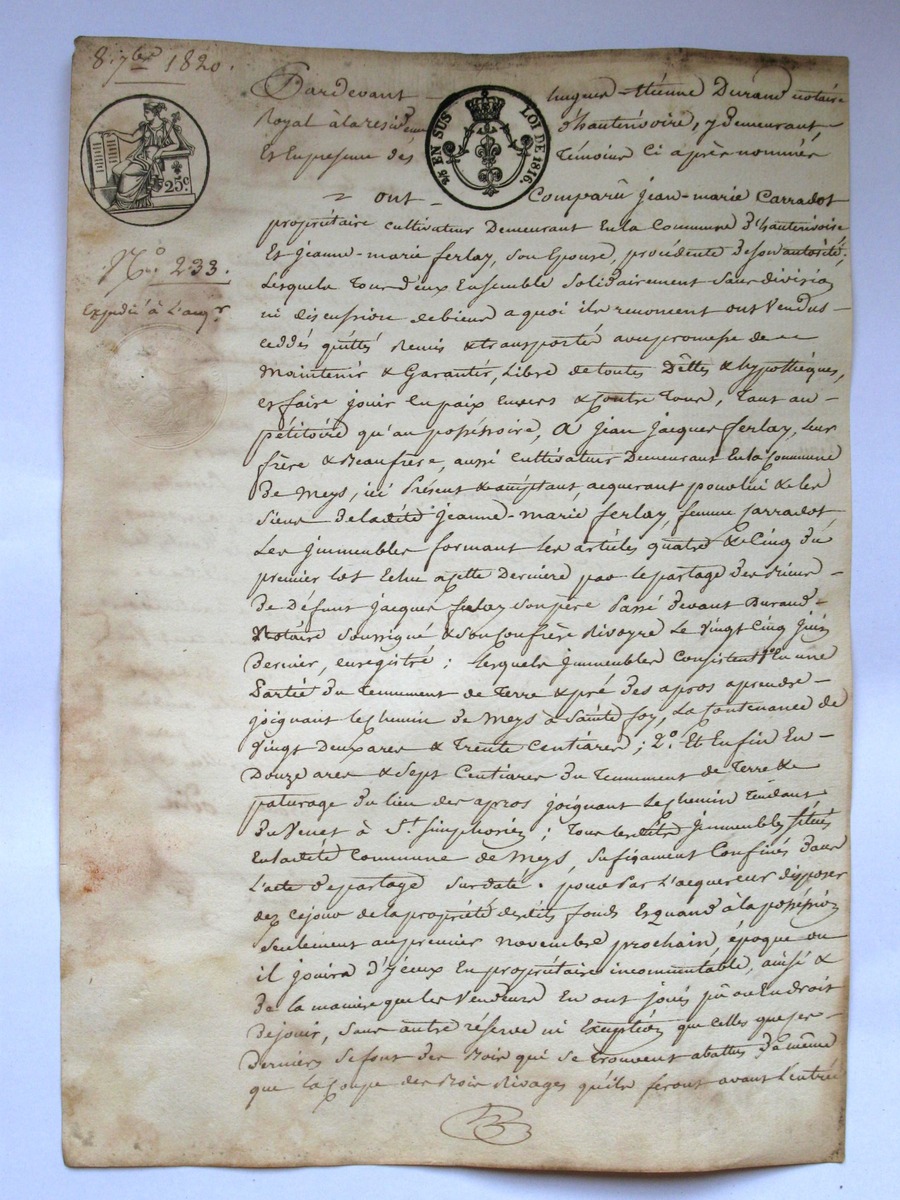 8. 7bre 1820.
25c.
¼ EN SUS LOI DE 1816.
No. 233.
Expédié à L'acqr.
Pardevant hugues-Etienne Durand notaire
Royal à la residence d'hauterivoire, y demeurant
Et En presence des Témoins Ci après nommés
ont Comparû Jean-marie Carradot
propriétaire cultivateur Demeurant En la Commune d'hauterivoire
Et Jeanne-marie ferlay, son Epouse, procédente de son autorité,
Lesquels Tous d'eux Ensemble Solidairement Sans division
ni discussion de biens a quoi ils renoncent ont Vendus
ceddés quittés Remis & transportés avec promesse de
Maintenir & Garantir, Libre de toutes Dêttes & hypothèques,
et faire jouir En paix Envers & Contre Tous, Tant au
pétitoire qu'au possessoire, à Jean Jacques ferlay, leur
frère & Beaufrère, aussi Cultivateur Demeurant En la Commune
De Meys, ici Présent & acceptant, acquerant pour lui & les
Siens De ladite Jeanne-marie ferlay, femme Carradot
Les Jmmeubles formant Les articles quatre & Cinq du
premier lot Echu a cette Derniere par le partage des Biens
de Défunt Jacques ferlay Son père Passé Devant Durand
Notaire Soussigné & Son Confrère Rivoyre Le Vingt Cinq Juin
Dernier, enregistré; Lesquels Jmmeubles Consistent 1o En une
Partie du Tennement de Terre & pré des apros aprendre
joignant le Chemin de Meys à Sainte foy, La Contenance de
Vingt Deux ares & Trente Centiares; 2o. Et Enfin En
Douze ares & Sept Centiares du Tennement de Terre &
paturage du lieu des apros joignant le Chemin Tendant
du Venet à St. Simphorien; Tous lesdits Jmmeubles Situés
En ladite Commune de Meys, Sufisament Confinés dans
L'acte de partage Surdaté. pour Par L'acquereur disposer
dez Cejour de la propriété desdits fonds Et quand à la possession
Seulement au premier novembre prochain, époque ou
il jouira d'Jceux En propriétaire incommutable, ainsi &
de la maniere que les Vendeurs En ont joui pû ou En droit
De jouir, Sans autre réserve ni Exception que Celles que ses
Derniers Se font des Bois qui Se trouvent abattus, De même
que la Coupe des Bois Rivages qu'ils feront avant L'entrée